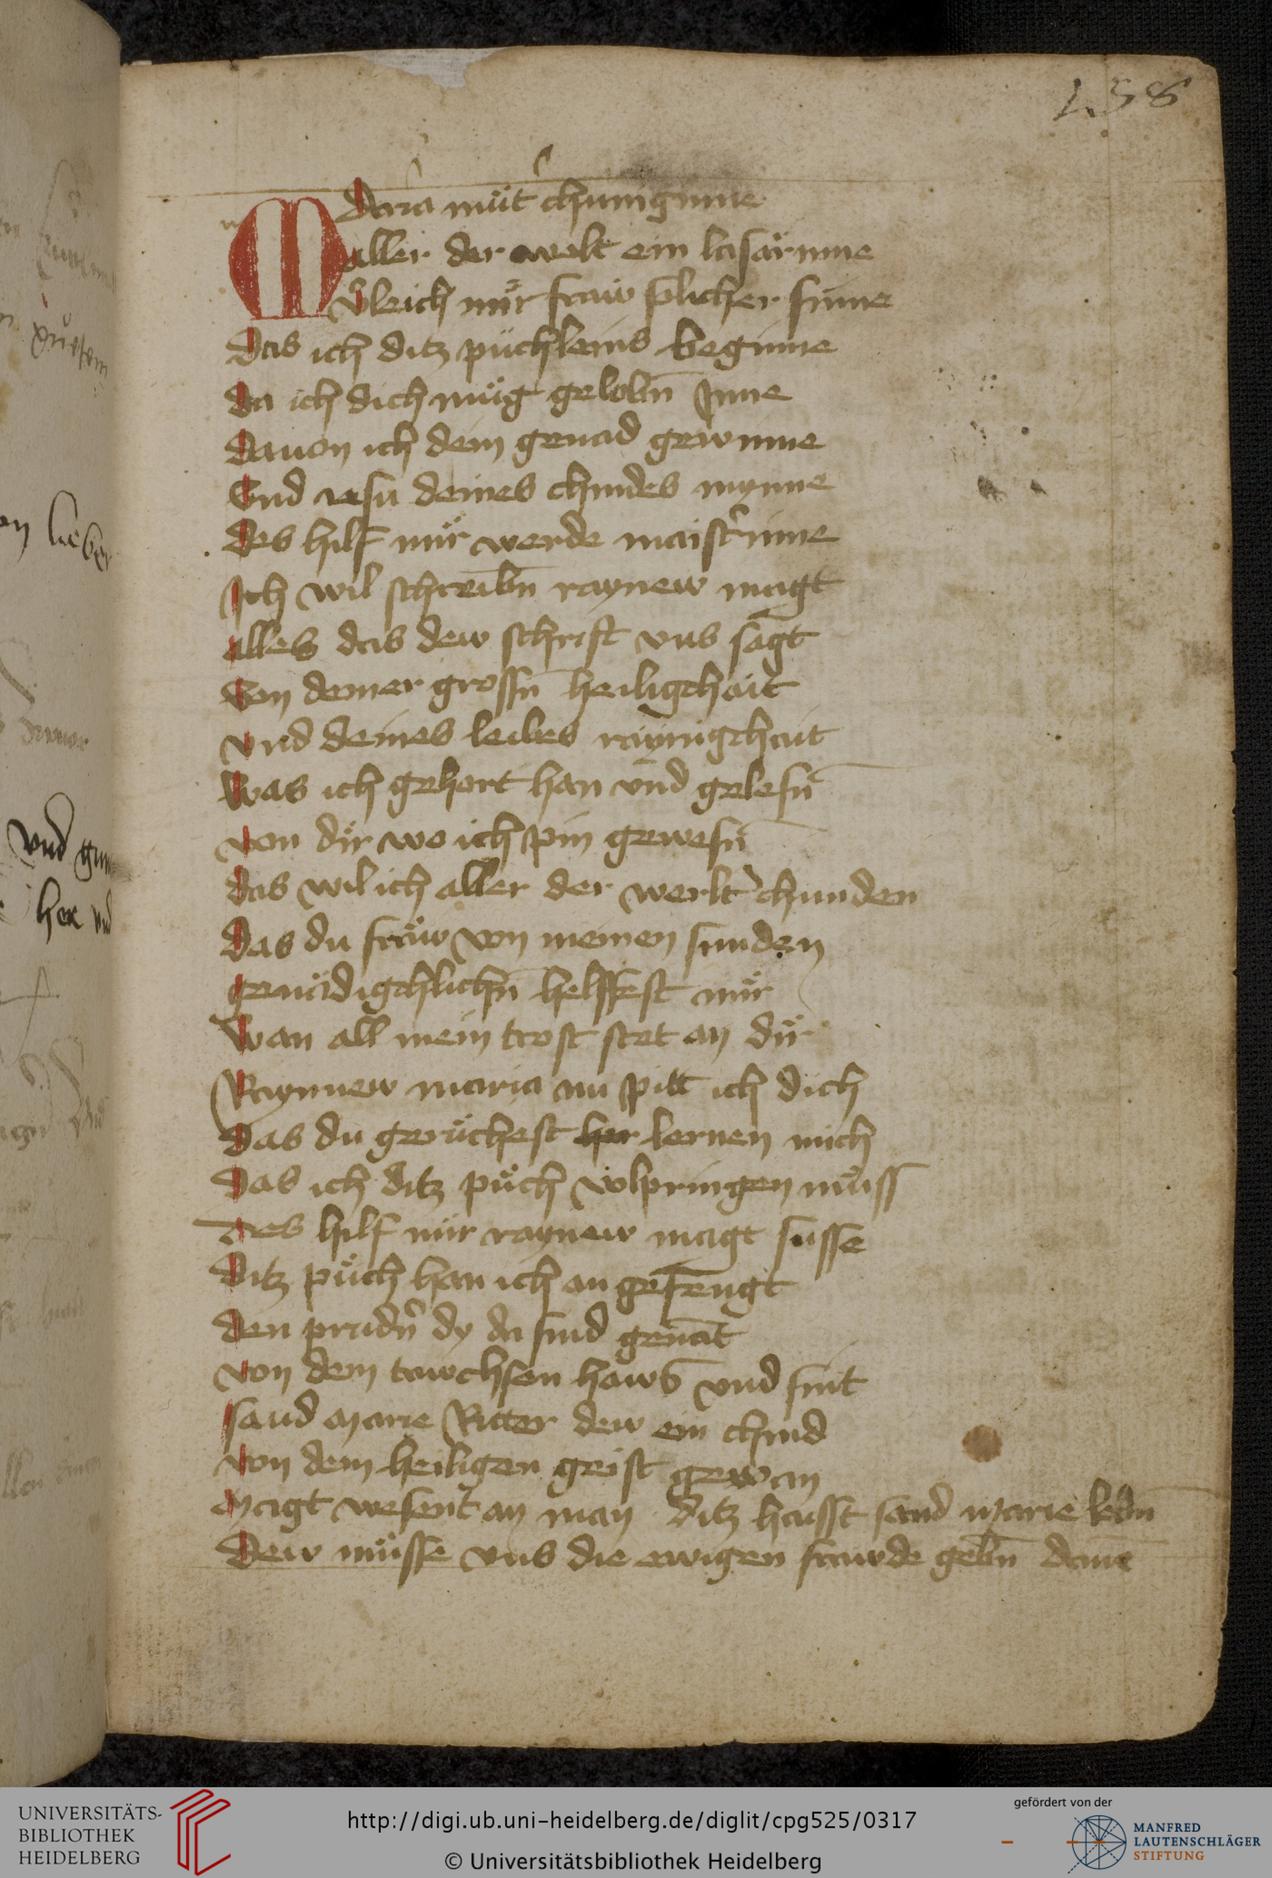 158
Maria mut̂ chuniginne
aller der welt ein lasärinne
Vleich mir fraw solicher sinne
Das ich ditz püchleins beginne
da ich dich müg gelobn̄ Inne
Dauon ich dein genad gewinne
Vnd iesu deines chindes mynne
des hilf mir werde maist̂inne
Ich wil schreibn̄ raynew magt
alles das dew schrift vns sagt
Von deiner grossn̄ heiligchait
vnd deines leibes raynigchait
Was ich gehort han vnd gelesn̄
von dir wo ich pin gewesn̄
das wil ich aller der werlt chunden
Das du fraw von meinen sunden
genädigchlichn̄ helffest mir
Wan all mein trost stet an dir
Raynnew maria nu pitt ich dich
Das du geruchest lernen mich
Das ich ditz püch volpringen müss
des hilf mir raynew magt susse
Ditz püch han ich an gefengt
Den prudn̂ dy da sind genāt
von dem tawchsen haws vnd sint
sand Marie Ritter dew ein chind
von dem heiligen geist gewan
Magt wesent an man Ditz haisst sand Marie lebn̄
Dew müsse vns die ewigen frawde gebn̄
UNIVERSITÄTS-
BIBLIOTHEK
HEIDELBERG
http://digi.ub.uni-heidelberg.de/diglit/cpg525/0317
© Universitätsbibliothek Heidelberg
gefördert von der
MANFRED
LAUTENSCHLÄGER
STIFTUNG